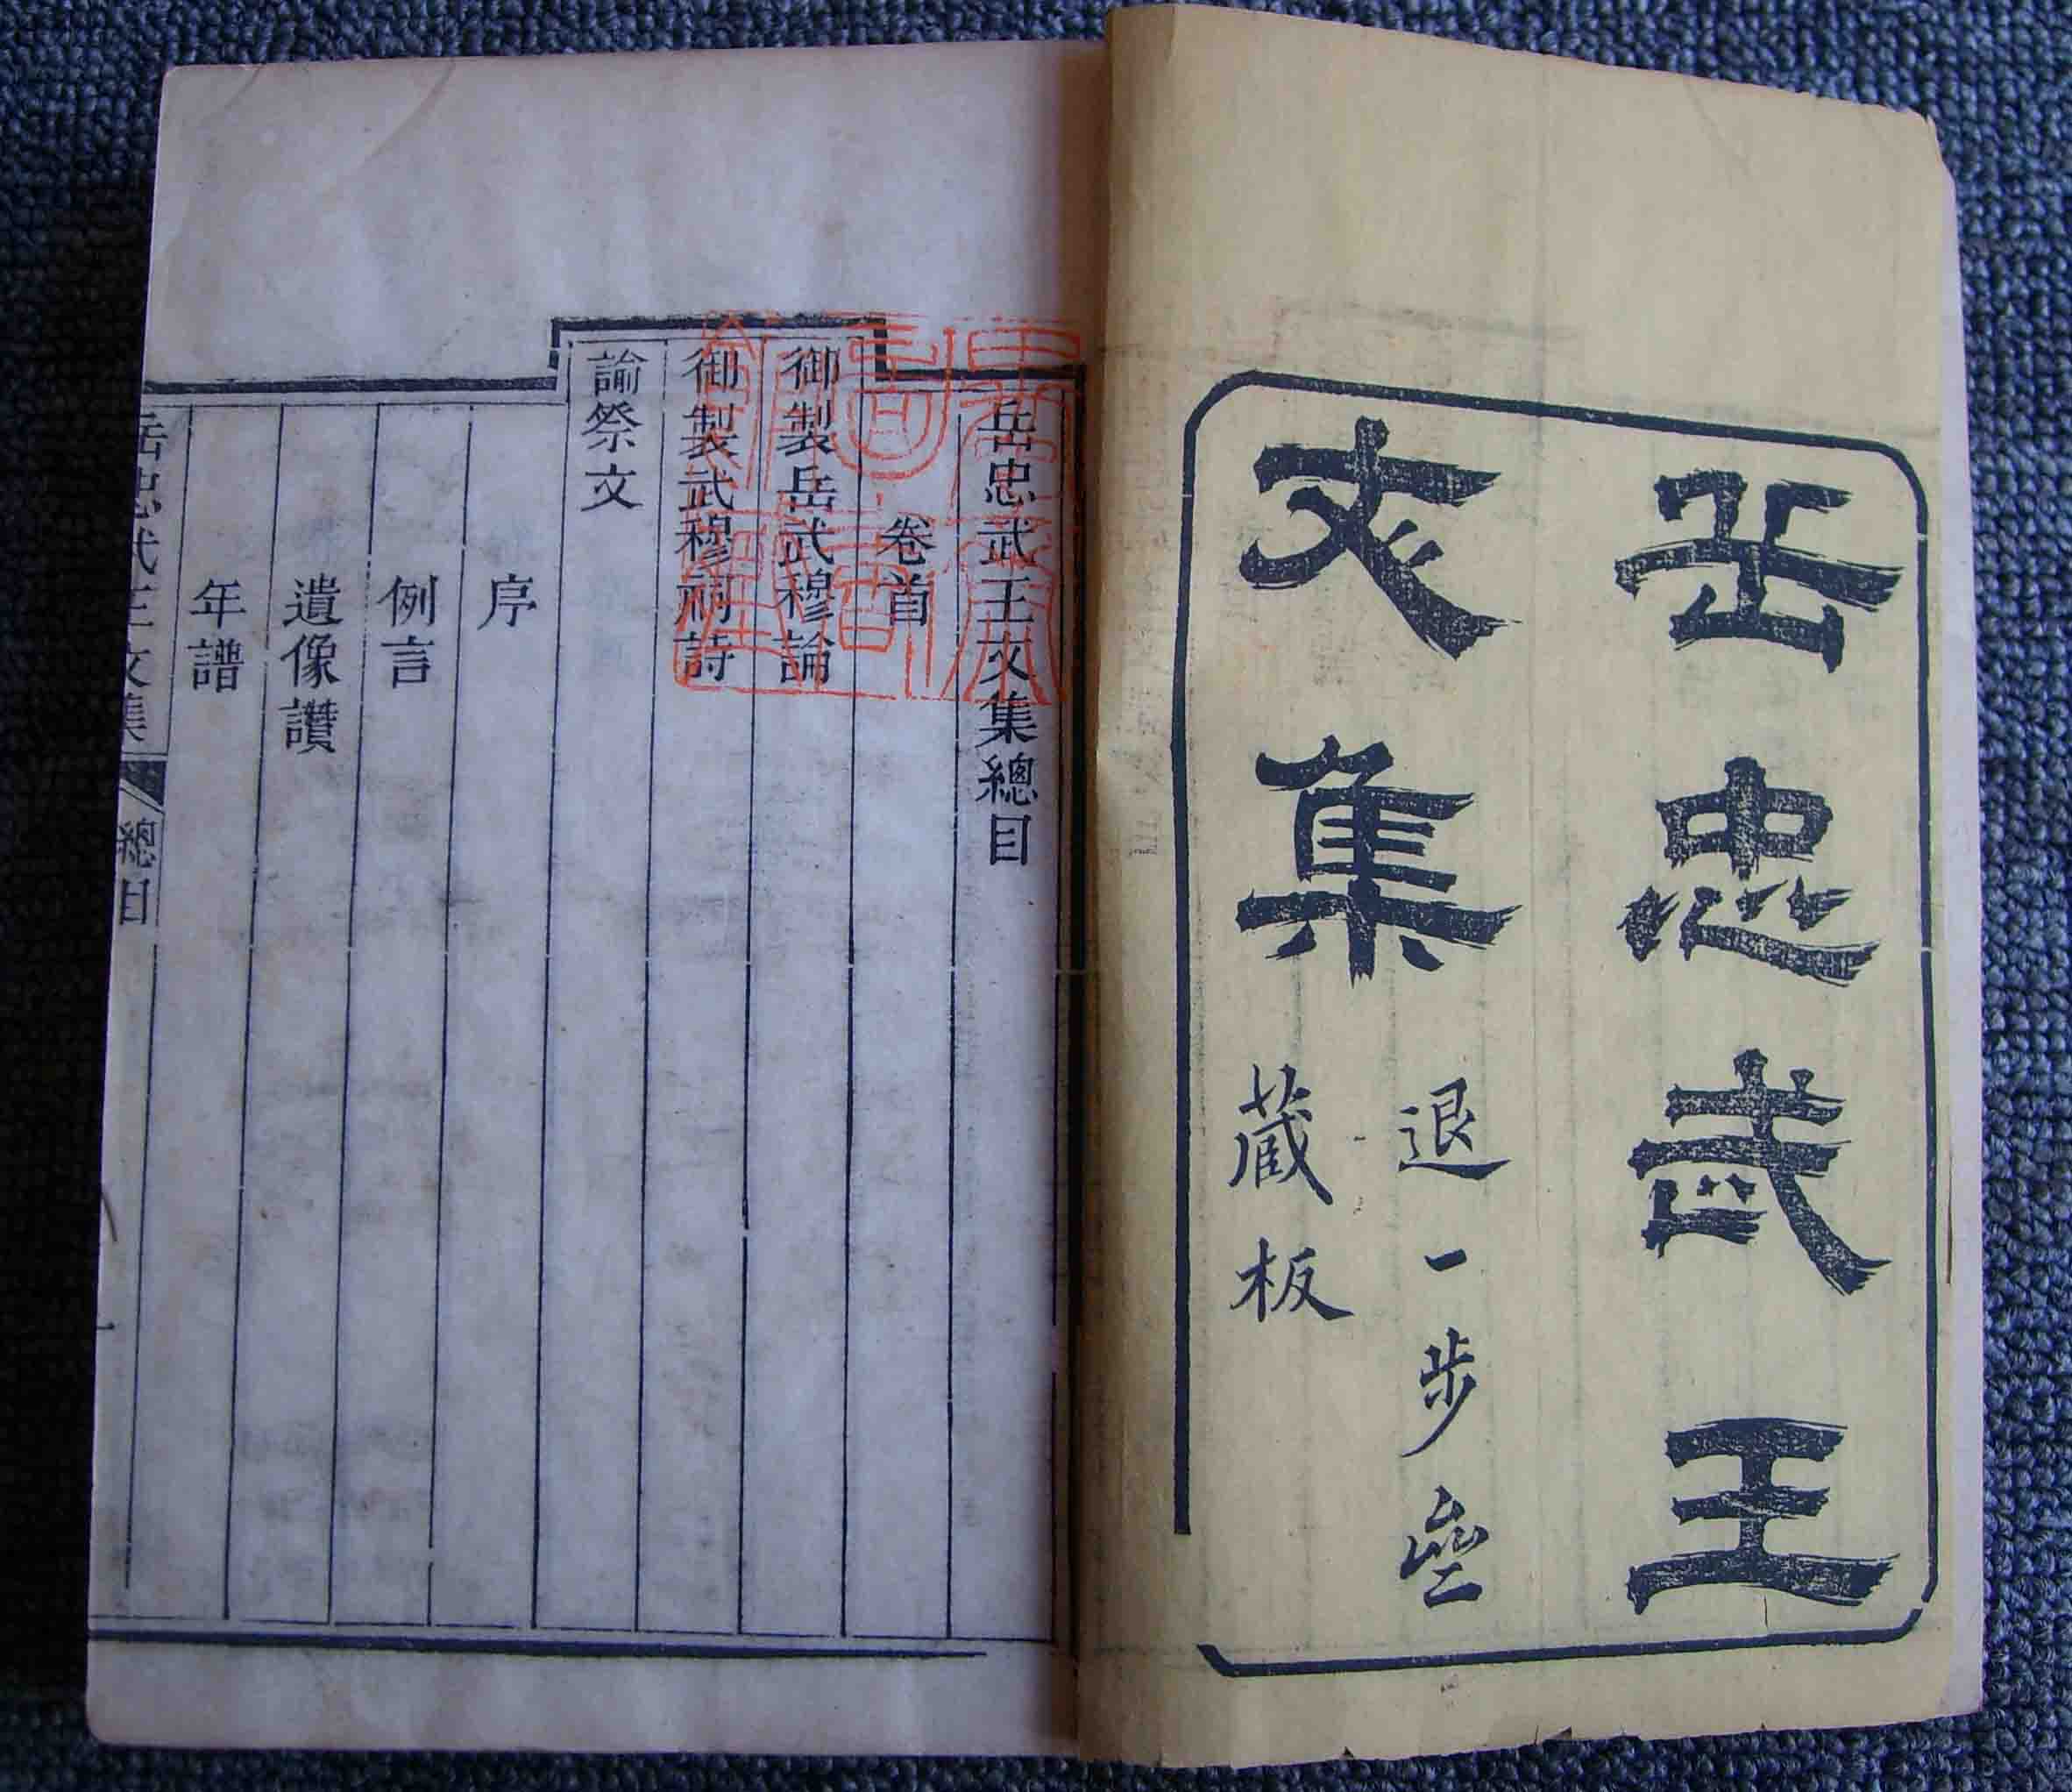 岳忠武王
文集
退一步堂
藏板
岳忠武王文集總目
卷首
御製岳武穆論
御製武穆祠詩
諭祭文
序
例言
遺像讚
年譜
岳忠武王文集 總目